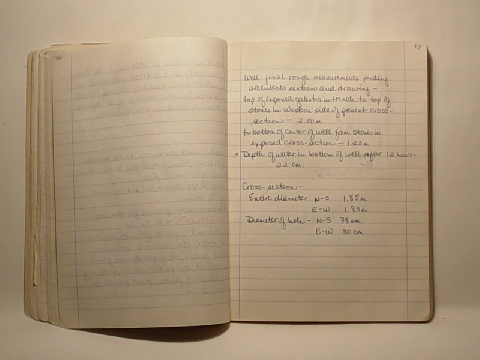 Well final rough measurements pending
architects sections and drawing -
top of exposed galena into hole to top of
stones in western side of present cross-
section - 2.50 m
to bottom of center of well from stones in
exposed cross-section - 1.23 m
* Depth of water in bottom of well after 12 hours -
22 cm.
Cross-section -
Entire diameter N-S 1.85 m
E-W 1.85 m
Diameter of hole - N-S 78 cm
E-W 80 cm